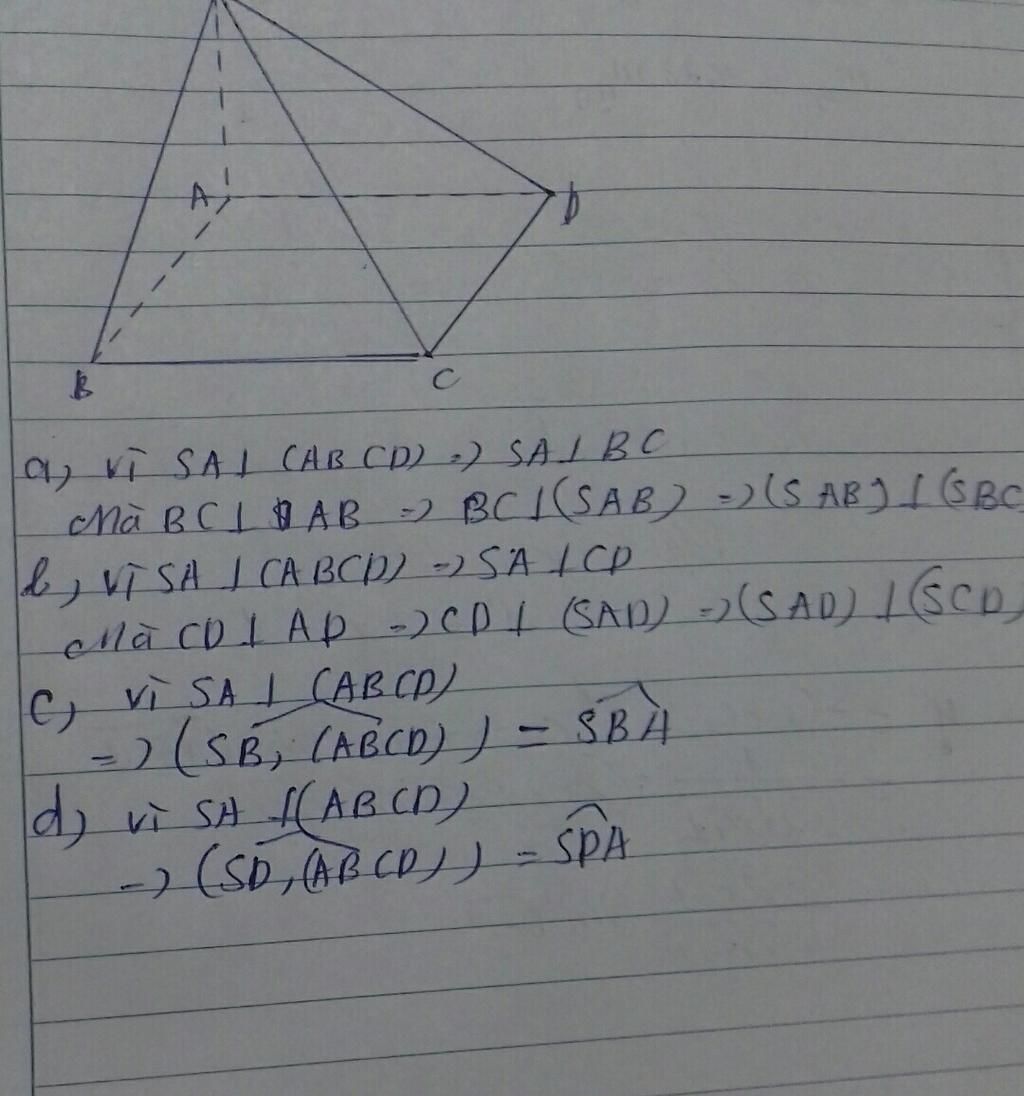 A
D
B
C
a, vì SA ⊥ (ABCD) => SA ⊥ BC
Mà BC ⊥ AB => BC ⊥ (SAB) => (SAB) ⊥ (SBC
b, vì SA ⊥ (ABCD) => SA ⊥ CD
Mà CD ⊥ AD => CD ⊥ (SAD) => (SAD) ⊥ (SCD)
c, vì SA ⊥ (ABCD)
=> (SB, (ABCD)) = SBA
d, vì SA ⊥ (ABCD)
=> (SD, (ABCD)) = SDA